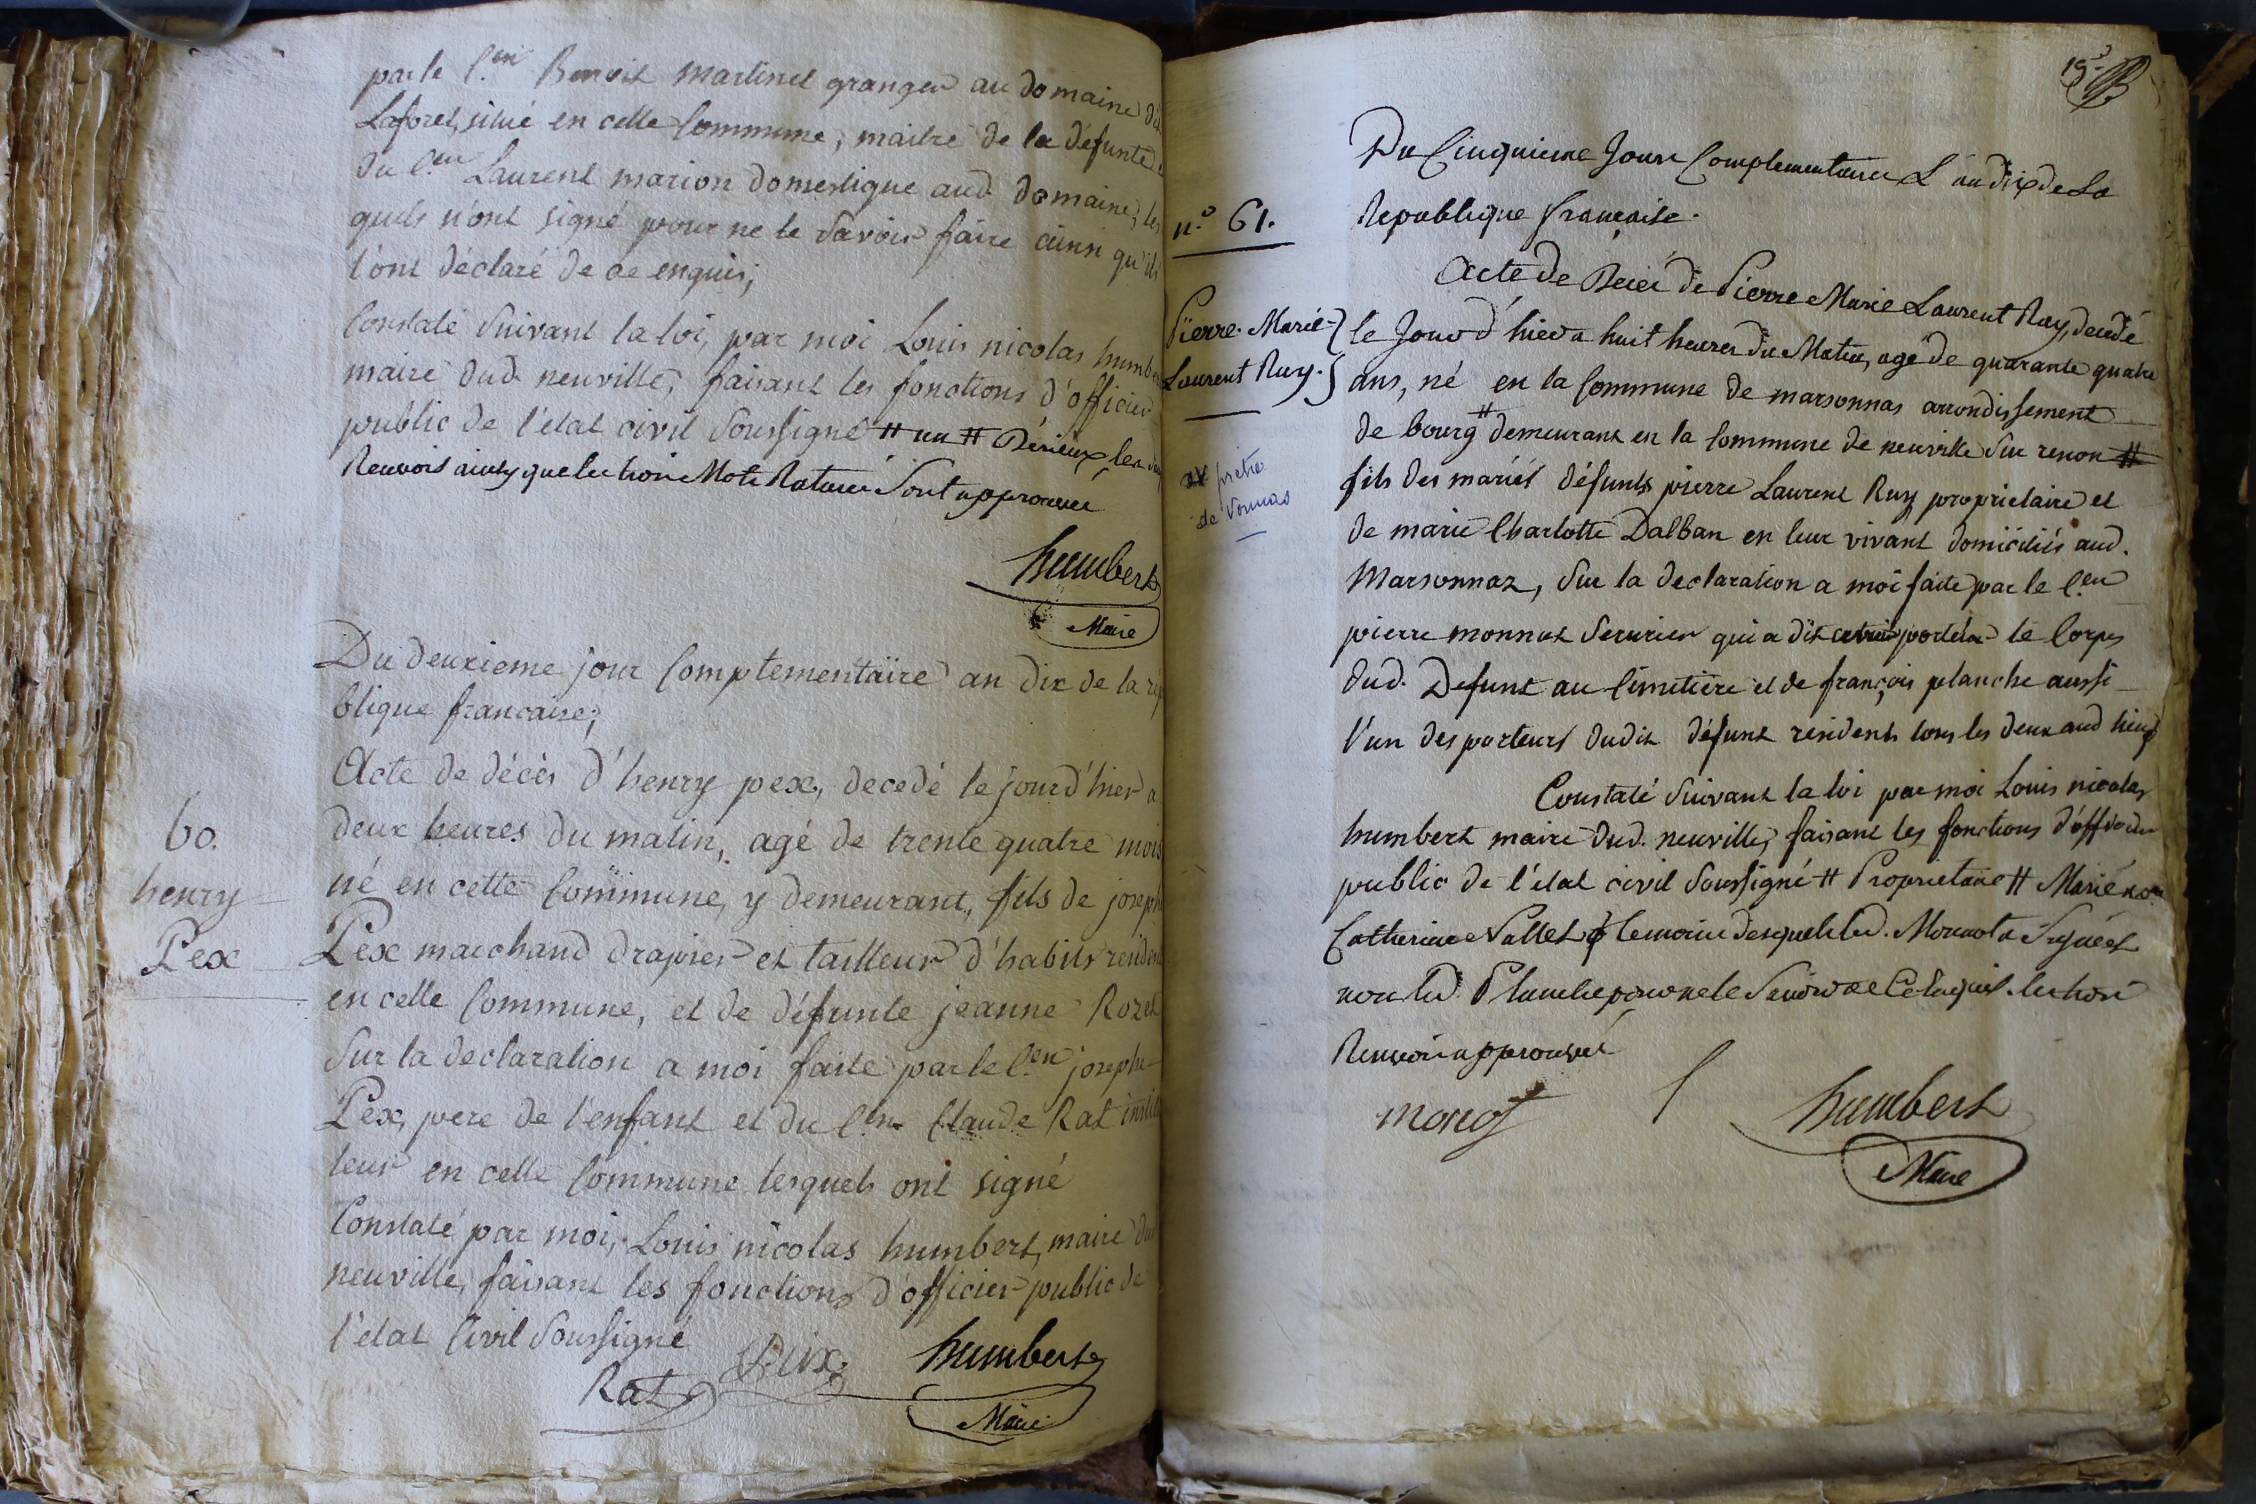 par le C.en Benoit Martinet granger au domaine dit
Laforet, situé en cette Commune, maitre de la défunte &
du C.en Laurent marion domestique aud. domaine, les
quels n'ont signé pour ne le savoir faire ainsi qu'ils
l'ont déclaré de ce enquis;
Constaté suivant la loi, par moi Louis nicolas humbert
maire dud. neuville, faisant les fonctions d'officier
public de l'état civil soussigné
Renvois ainsy que les trois Mots Raturés sont approuvés
humbert
Maire
Du deuxieme jour Complementaire an dix de la répu
blique francaise;
60.
henry
Pex
Acte de décès d'henry pex, decedé le jourd'hier a
deux heures du matin, agé de trente quatre mois
né en cette Commune, y demeurant, fils de joseph
Pex marchand drapier et tailleur d'habits resident
en cette Commune, et de défunte jeanne Rozet
Sur la declaration a moi faite par le C.en joseph
Pex, pere de l'enfant et du C.en Claude Rat institu
teur en cette Commune lesquels ont signé
Constaté par moi, Louis nicolas humbert, maire dud
neuville, faisant les fonctions d'officier public de
l'etat Civil Soussigné
Rat
humbert
Maire
19.e
Du Cinquieme Jour Complementaire L'an dix de La
Republique française.
n.o 61.
Pierre Marie
Laurent Ruy.
ex prêtre
de Vonnas
Acte de Decei de Pierre Marie Laurent Ruy, decedé
le Jour d'hier a huit heures du Matin, age de quarante quatre
ans, né en la Commune de marsonnas arrondissement
de bourg # demeurant en la Commune de neuville sur renon #
fils des mariés défunts pierre Laurent Ruy proprietaire et
de marie Charlotte Dalban en leur vivant domiciliés aud.
Marsonnaz, sur la declaration a moi faite par le C.en
pierre monnot serrurier qui a dit porter le Corps
dud. Defunt au Cimetière et de françois planche aussi
l'un des porteurs dudit défunt residents tous les deux aud lieu
Constaté suivant la loi par moi Louis nicolas
humbert maire dud. neuville, faisant les fonctions d'officier
public de l'etat civil soussigné # Proprietaire # Marié
Catherine Vallet temoins desquels led. Monnot a Signé et
non led. Planche pour ne le Savoir de Ce Enquis. les trois
Renvois approuvés
monot
humbert
Maire